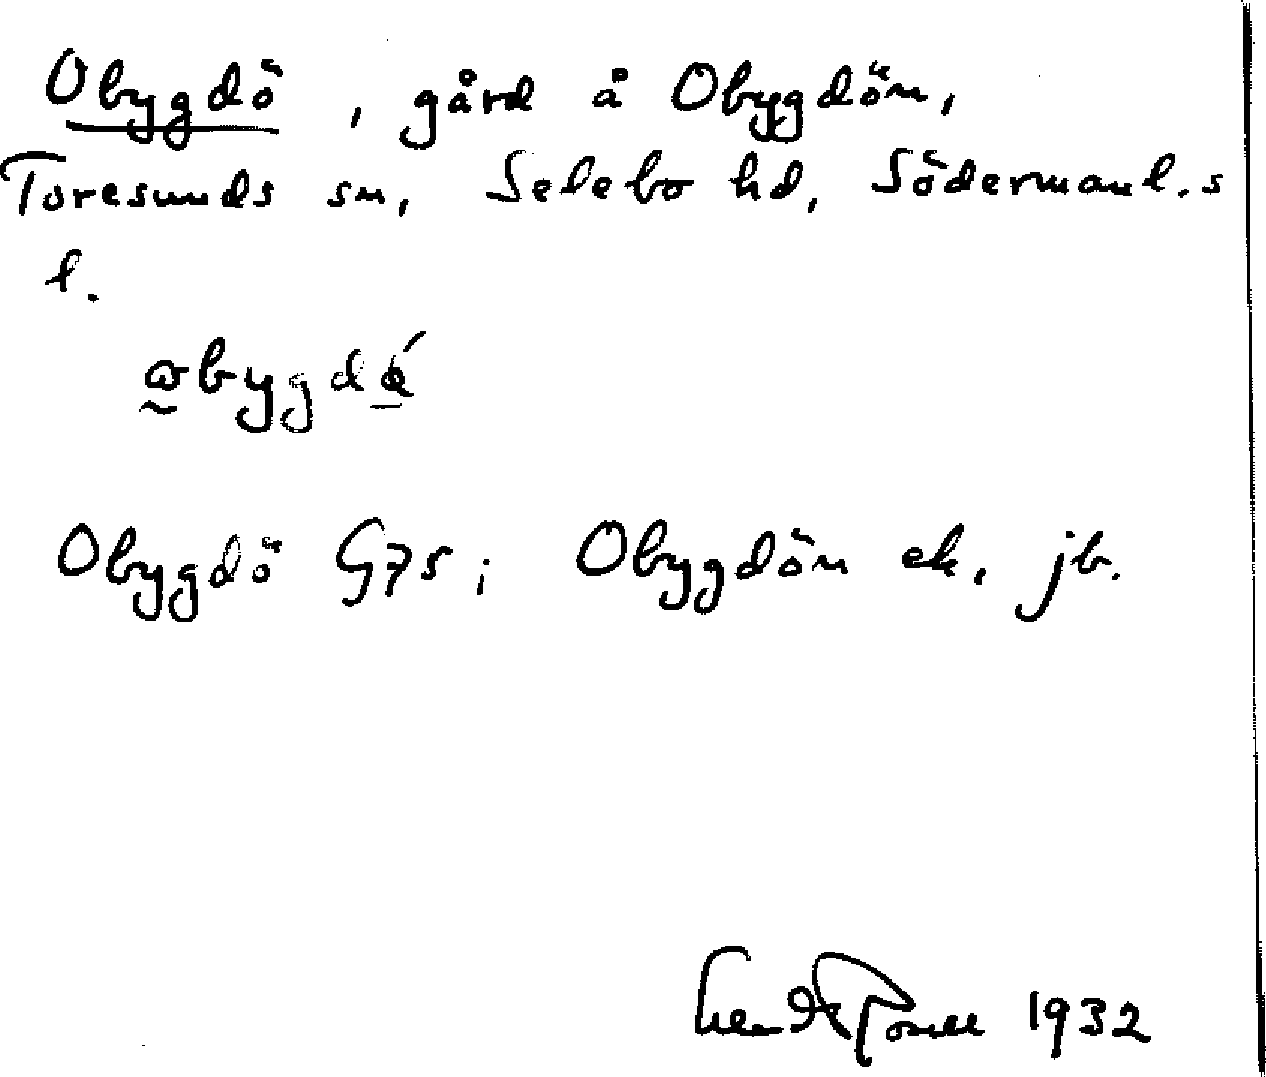 Obygdö, gård å Obygdön,
Toresunds sn, Selebo hd, Södermanl.s
l.
Obygdö G75; Obygdön ek. jb.
1932